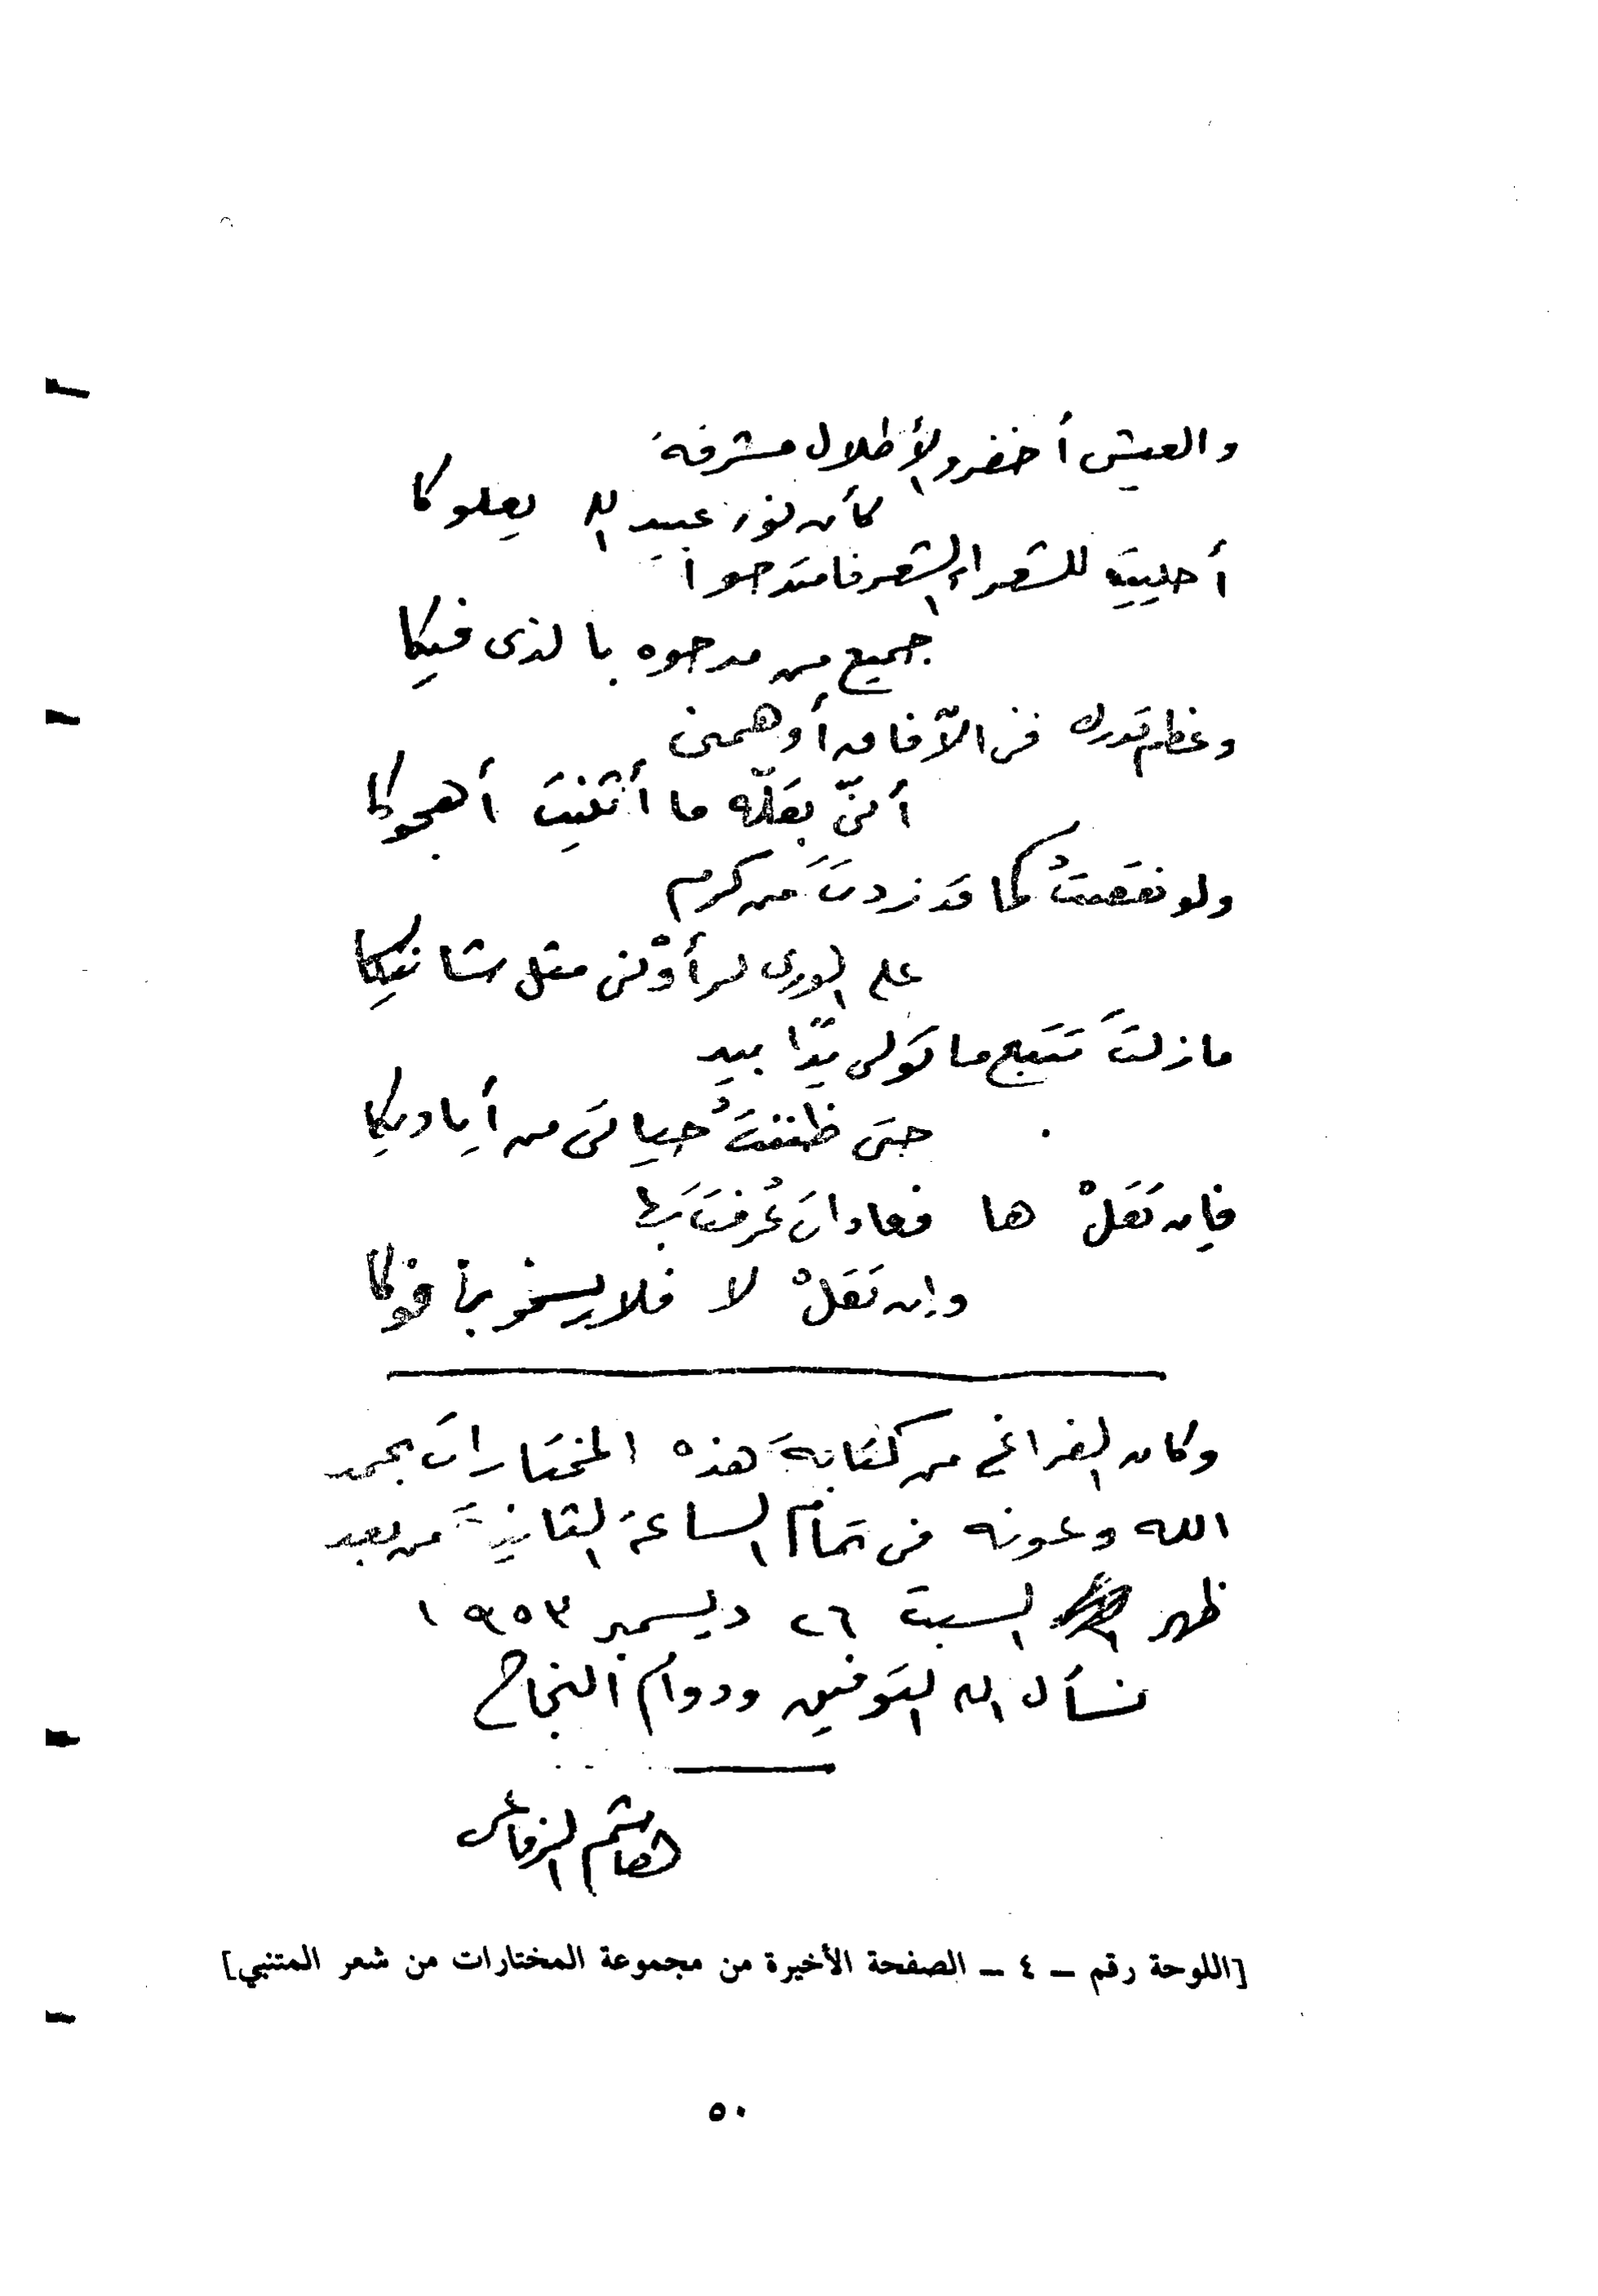 والعيش أخضر والأطلال مشرقة
كأن نور عبيد الله يعلوكا
أحييت للشعراء الشعر فامتدحوا
جميع من مدحوه بالذى فيكا
وعظم قدرك فى الآفاق أوهمنى
أنىّ بقلّة ما أثنيت أهجوكا
ولو نقصتُ كما قد زدتَ من كرم
على الورى لرأوْنى مثل شانيكا
ما زلتَ تتبع ما تولى يدًا بيد
حتى ظننتُ حياتى من أياديكا
فإن تقلْ ها فعادات عُرفتَ بها
وإن تقلْ لا فلا يسخو بها فوكا
وكان الفراغ من كتابة هذه المختارات بحمد
الله وعونه فى تمام الساعة الثانية من بعد
ظهر السبت ٢٦ ديسمبر ١٩٥٣
نسأل الله التوفيق ودوام النجاح
هاشم الرفاعى
[اللوحة رقم – ٤ – الصفحة الأخيرة من مجموعة المختارات من شعر المتنبي]
٥٠